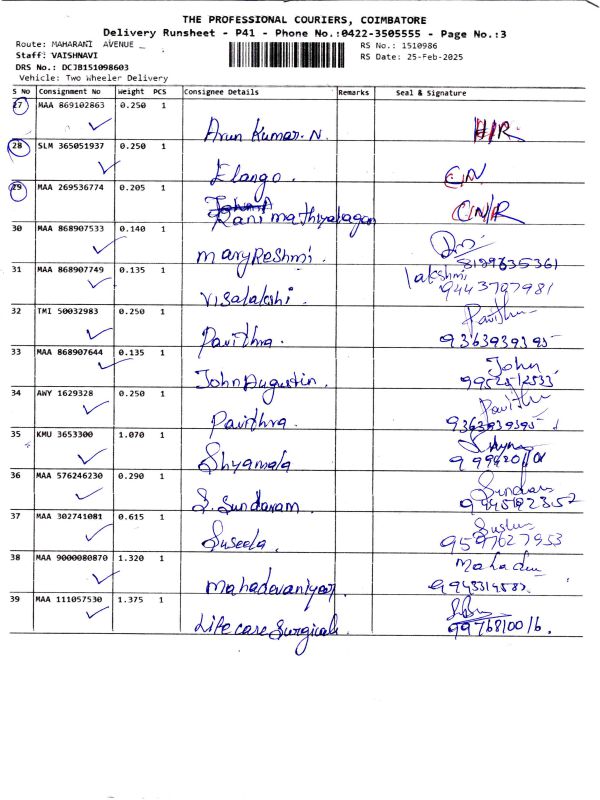 THE PROFESSIONAL COURIERS, COIMBATORE
Delivery Runsheet - P41 - Phone No.:0422-3505555 - Page No.:3
Route: MAHARANI AVENUE
RS No.: 1510986
Staff: VAISHNAVI
RS Date: 25-Feb-2025
DRS No.: DCJB151098603
Vehicle: Two Wheeler Delivery
S No Consignment No Weight PCS Consignee Details Remarks Seal & Signature
27 MAA 869102863 0.250 1
Arun Kumar. N.
28 SLM 365051937 0.250 1
Elango.
29 MAA 269536774 0.205 1
Kanimathiyalagan
30 MAA 868907533 0.140 1
Mary Reshmi.
31 MAA 868907749 0.135 1 lakshmi
Visalakshi. 9443797981
32 TMI 50032983 0.250 1 Pavithra
Pavithra. 9363939395
33 MAA 868907644 0.135 1 John
John Augustin.
34 AWY 1629328 0.250 1 Pavithra
Pavithra. 9363939395
35 KMU 3653300 1.070 1
Shyamala
36 MAA 576246230 0.290 1
S. Sundaram.
37 MAA 302741081 0.615 1
Suseela. 9597627953
38 MAA 9000080870 1.320 1
Mahadevaniyar
39 MAA 111057530 1.375 1
Life care Surgicals.